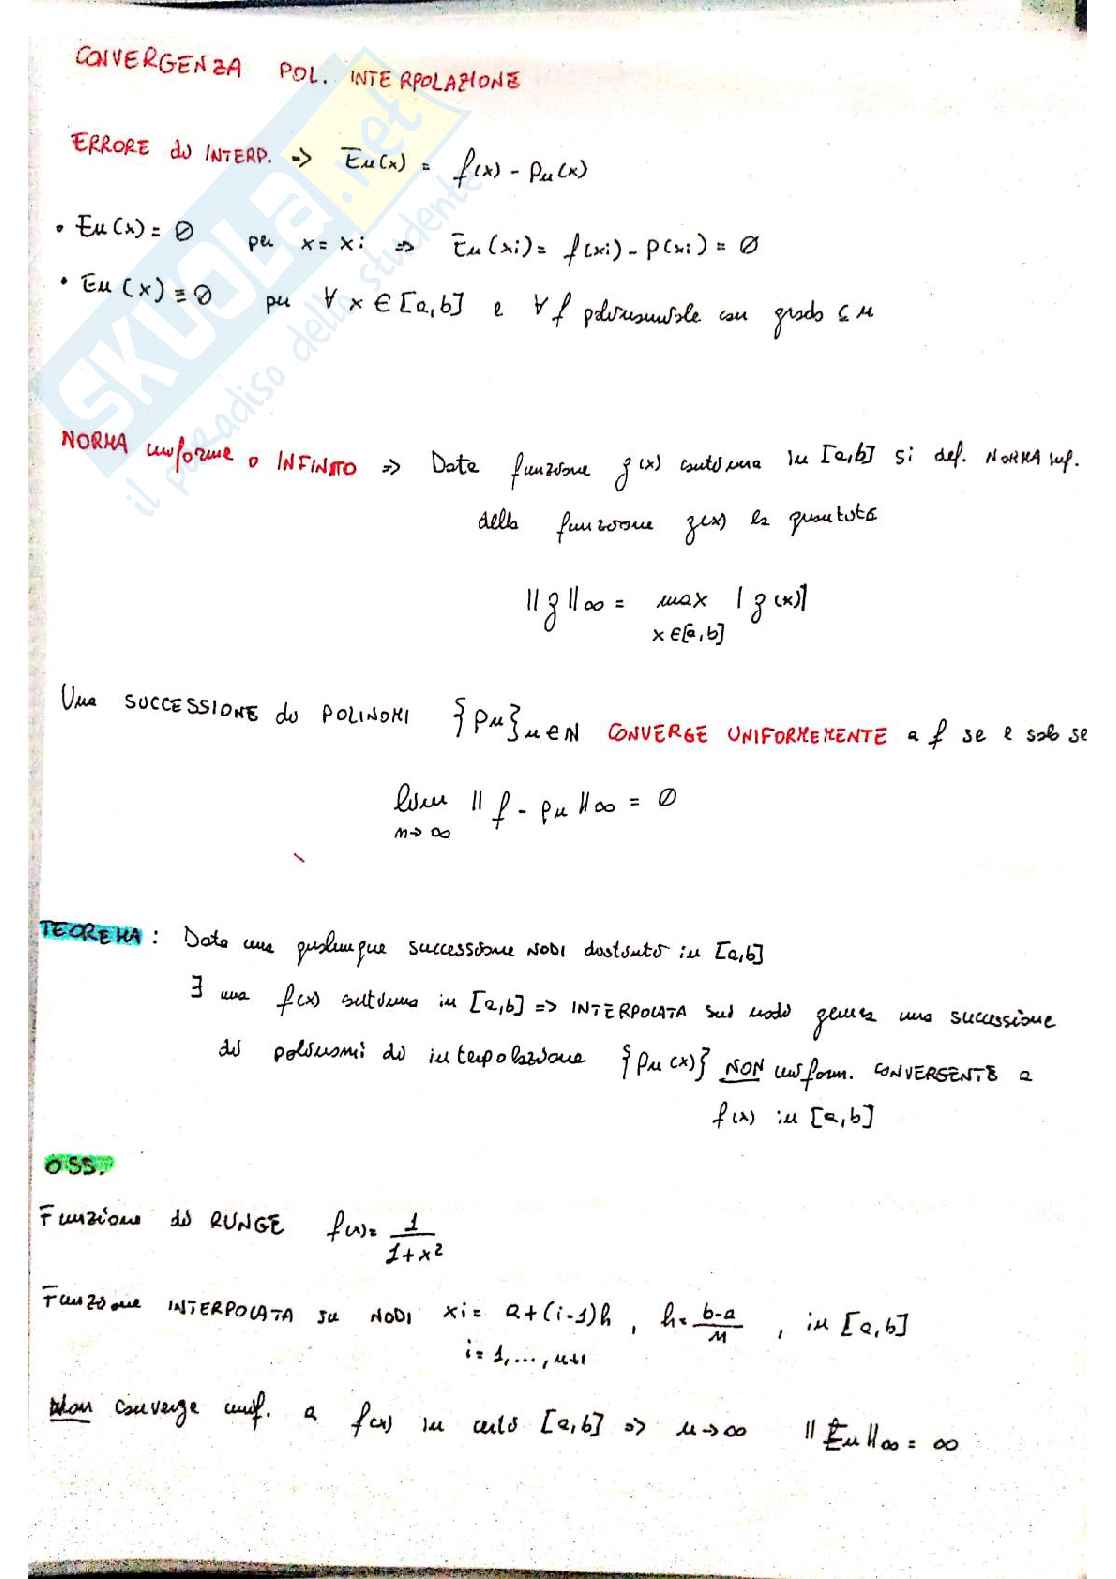 CONVERGENZA POL. INTERPOLAZIONE
ERRORE di INTERP. => En(x) = f(x) - pn(x)
• En(x) = ∅ per x = xi => En(xi) = f(xi) - p(xi) = ∅
• En(x) ≡ ∅ per ∀ x ∈ [a,b] e ∀ f polinomiale con grado ≤ n
NORMA uniforme o INFINITO => Data funzione g(x) continua in [a,b] si def. NORMA inf.
della funzione g(x) la quantità
||g||∞ = max |g(x)|
x ∈ [a,b]
Una SUCCESSIONE di POLINOMI {pn}n∈N CONVERGE UNIFORMEMENTE a f se e solo se
lim || f - pn ||∞ = ∅
n→∞
TEOREMA: Data una qualunque successione NODI distinti in [a,b]
∃ una f(x) continua in [a,b] => INTERPOLATA sui nodi genera una successione
di polinomi di interpolazione {pn(x)} NON uniform. CONVERGENTE a
f(x) in [a,b]
OSS.
Funzione di RUNGE f(x) = 1/(1+x²)
Funzione INTERPOLATA su NODI xi = a+(i-1)h, h = (b-a)/n, in [a,b]
i = 1,...,n+1
Non converge unif. a f(x) in certi [a,b] => n→∞ ||En||∞ = ∞
SKUOLA.net
il paradiso dello studente